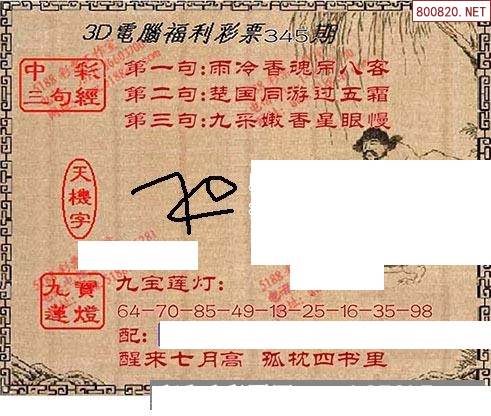 800820.NET
3D電腦福利彩票345期
中彩三句經
第一句:雨冷香魂吊八客
第二句:楚国同游过五霜
第三句:九采嫩香星眼慢
天機字
九寶蓮燈
九宝莲灯:
64-70-85-49-13-25-16-35-98
配:
醒来七月高 孤枕四书里